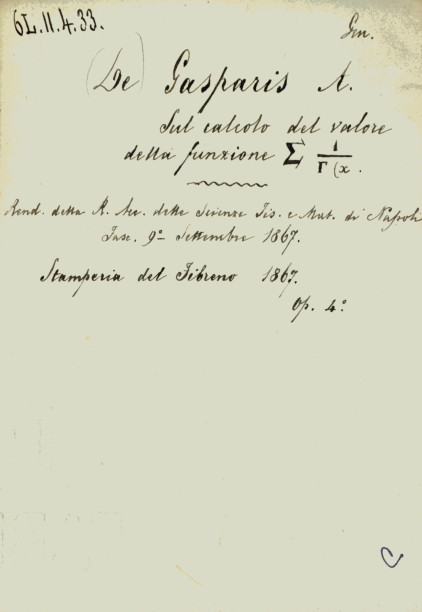 6L.11.4.33.
Gen.
(De) Gasparis A.
Sul calcolo del valore
della funzione Σ 1/Γ(x.
Rend. della R. Acc. delle Scienze Fis. e Mat. di Napoli
Fasc. 9º Settembre 1867.
Stamperia del Fibreno 1867.
Op. 4º
C